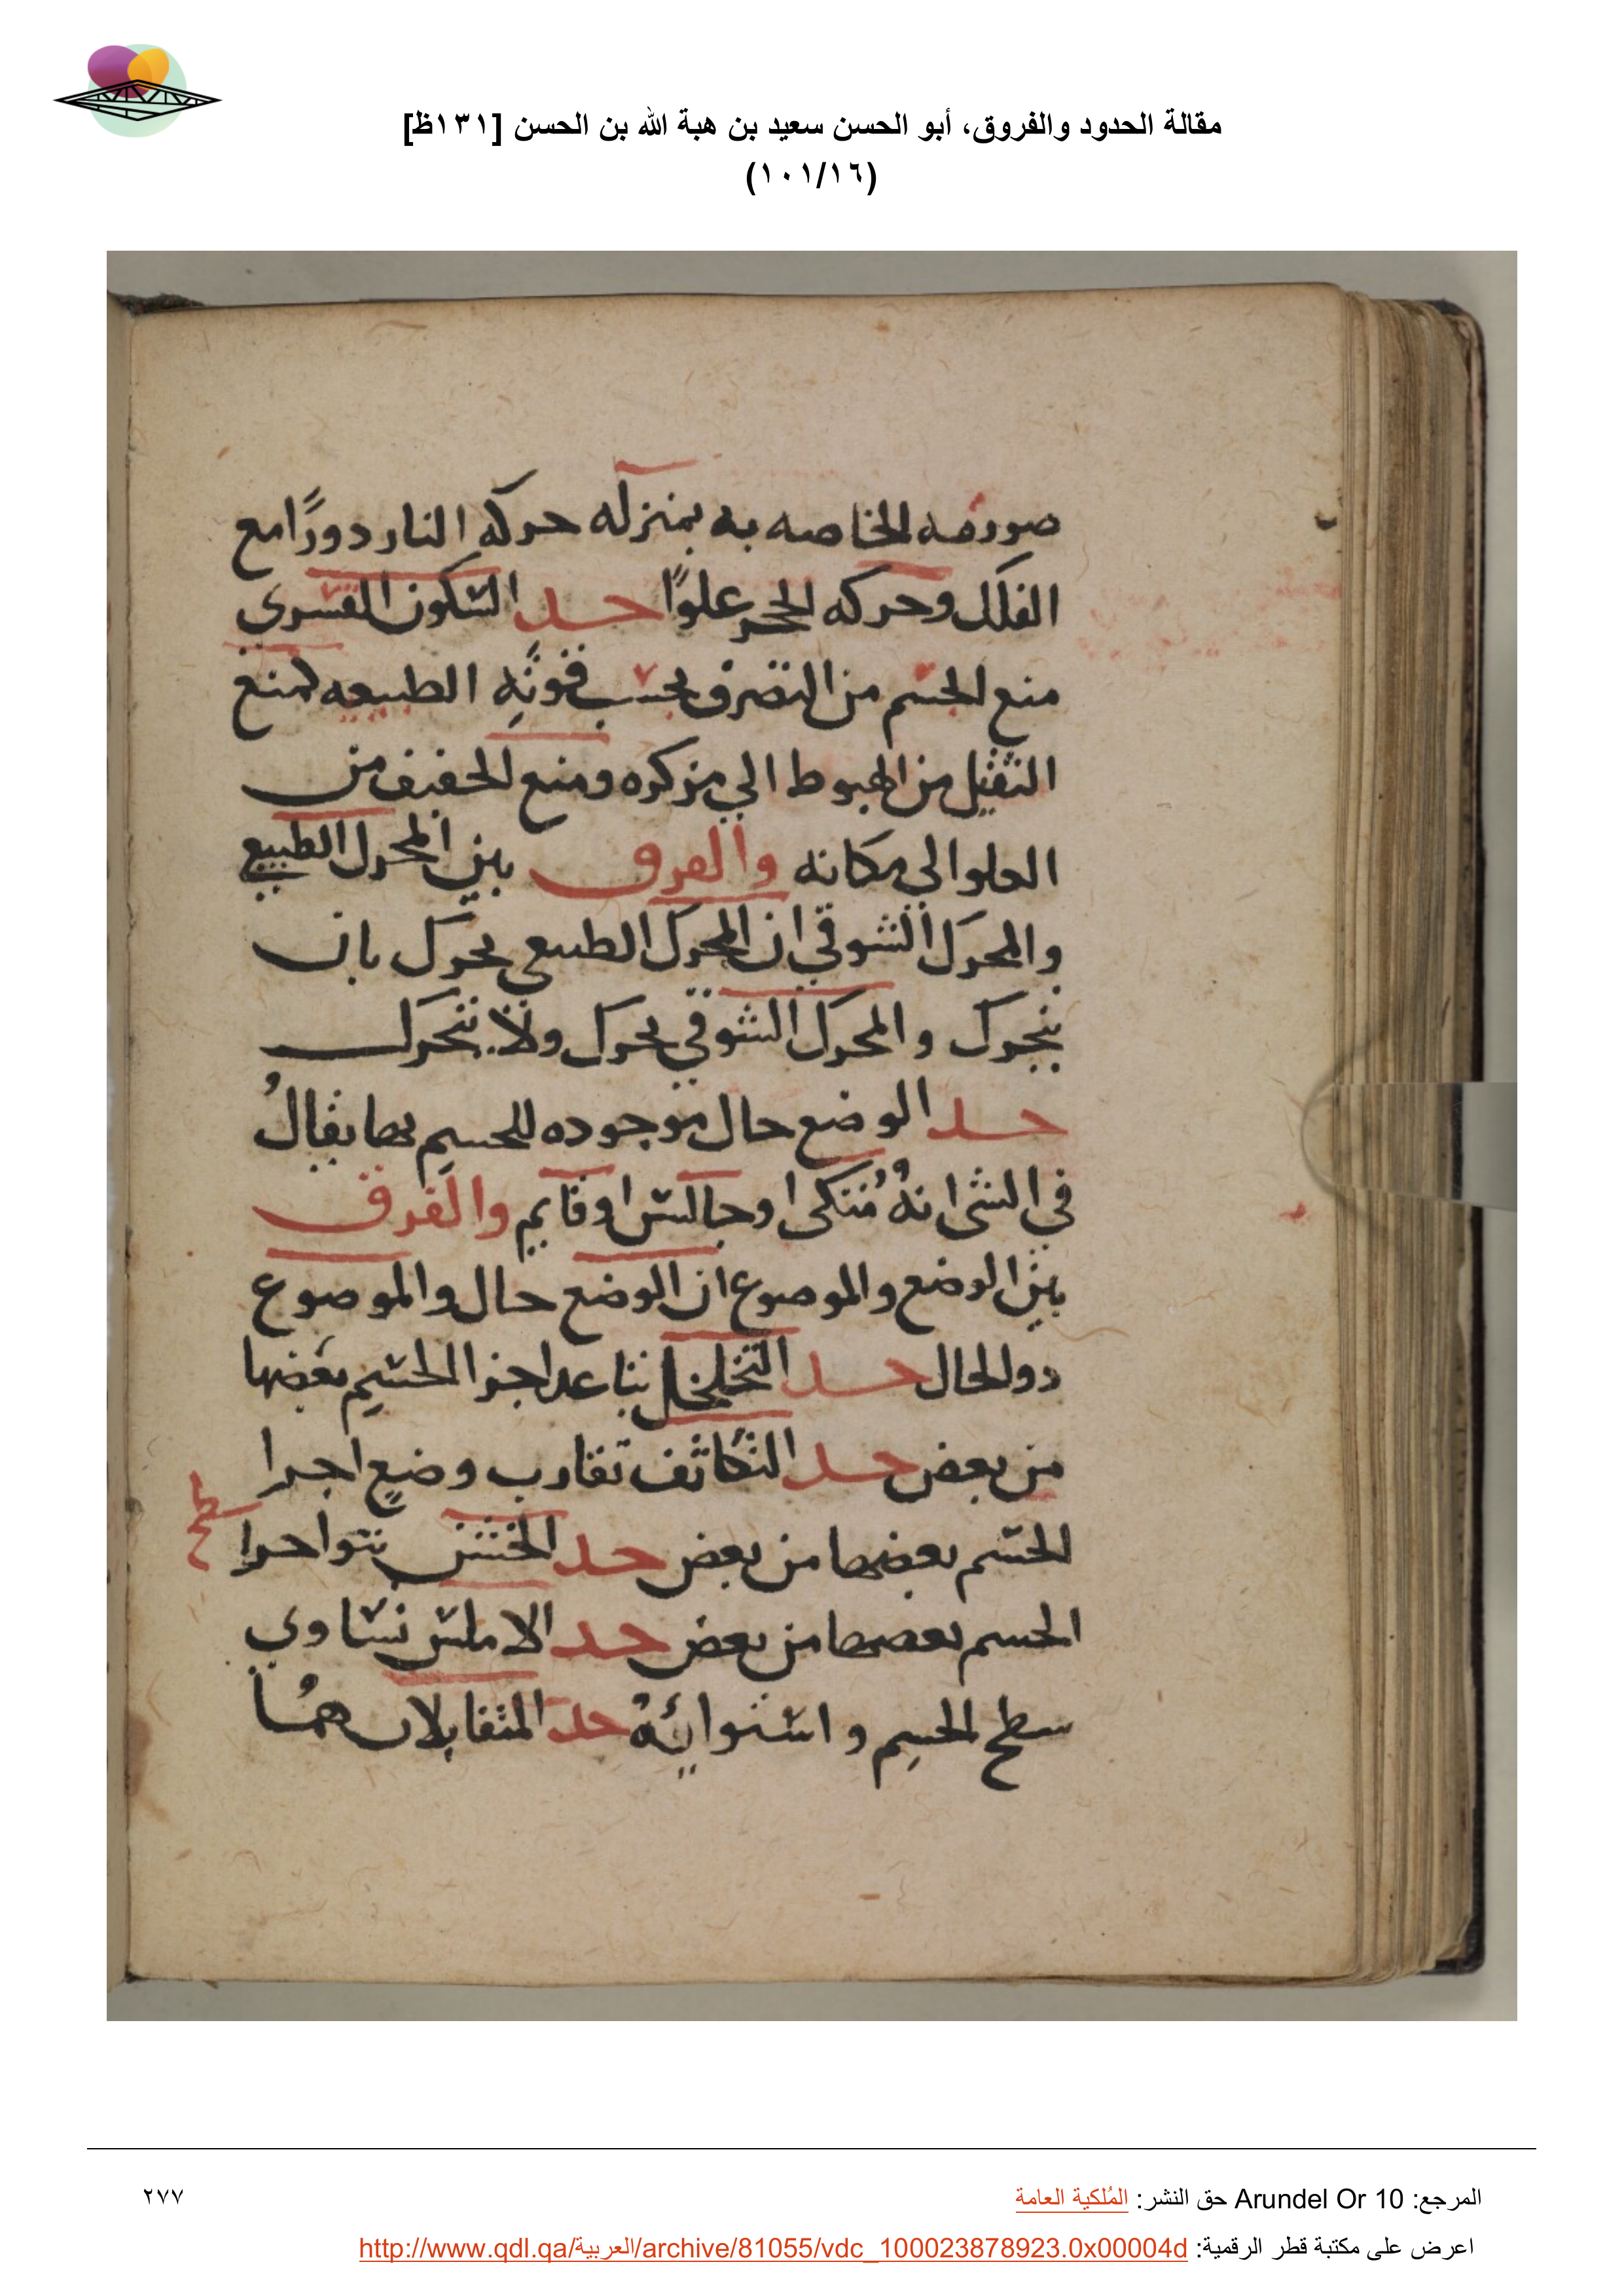 مقالة الحدود والفروق، أبو الحسن سعيد بن هبة الله بن الحسن [١٣١ظ]
(١٠١/١٦)
صورته الخاصه به بمنزله حركه النار دورًا مع
الفلك وحركه الحجر علوًا حد السكون القسري
منع الجسم من التصرف بحسب قوته الطبيعه كمنع
الثقيل من الهبوط الي مركزه ومنع الخفيف من
العلو الي مكانه والفرق بين المحرك الطبيعي
والمحرك الشوقي ان المحرك الطبيعي يحرك بان
يتحرك والمحرك الشوقي يحرك ولا يتحرك
حد الوضع حال موجوده للجسم بها يقالُ
في الشي انهُ مُتكي او جالس او قايم والفرق
بين الوضع والموضوع ان الوضع حال والموضوع
ذو الحال حد التخلخل تباعد اجزا الجسم بعضها
من بعض حد التكاثف تقارب وضع اجزا
الجسم بعضها من بعض حد الخشن نتو اجزا
سطح
الجسم بعضها من بعض حد الاملس تساوي
سطح الجسم واستوائهُ حد المتقابلان همُا
المرجع: Arundel Or 10 حق النشر: المُلكية العامة
٢٧٧
اعرض على مكتبة قطر الرقمية: http://www.qdl.qa/العربية/archive/81055/vdc_100023878923.0x00004d